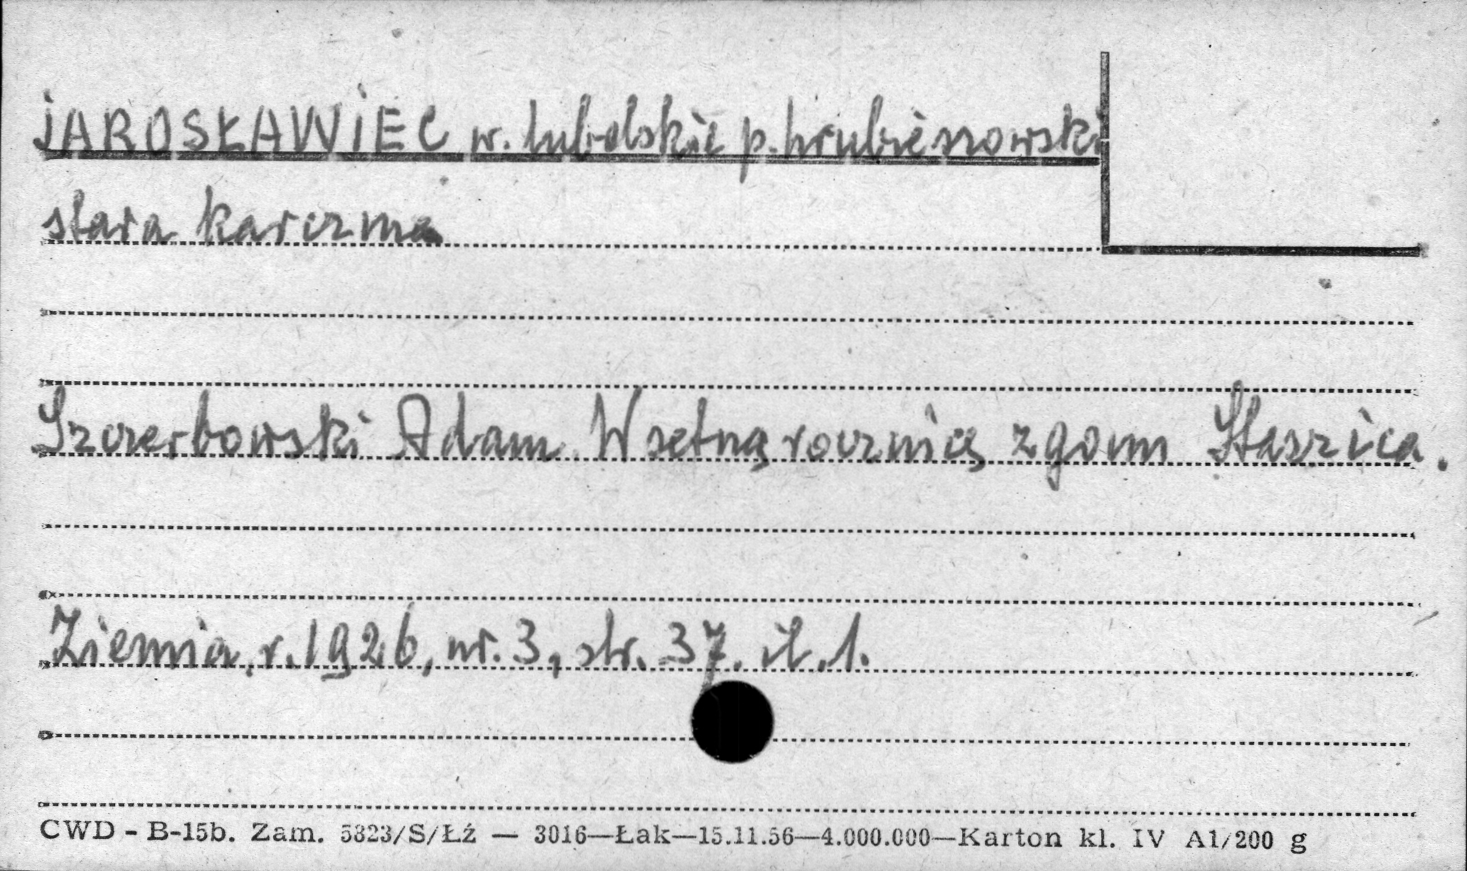 JAROSŁAWIEC w. lubelskie p. hrubieszowski
stara karczma
Szczerbowski Adam. W setną rocznicę zgonu Staszica.
Ziemia, r. 1926, nr. 3, str. 37. il. 1.
CWD - B-15b. Zam. 5323/S/Łź — 3016—Łak—15.11.56—4.000.000—Karton kl. IV A1/200 g